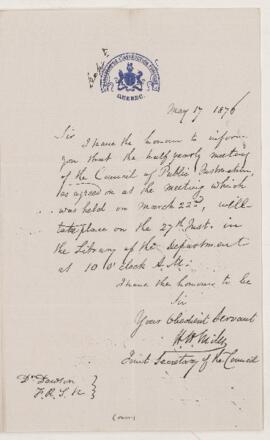 QUEBEC.
May 17 1876
Sir
I have the honour to inform
you that the half yearly meeting
of the Council of Public Instruction,
as agreed on at the meeting which
was held on March 22d, will
take place on the 27th Inst. in
the Library of the Department
at 10 o'clock A.M.
I have the honour to be
Sir
Your Obedient Servant
H. H. Miles
Joint Secretary of the Council
Dr Dawson
F.R.S. &c
(over)